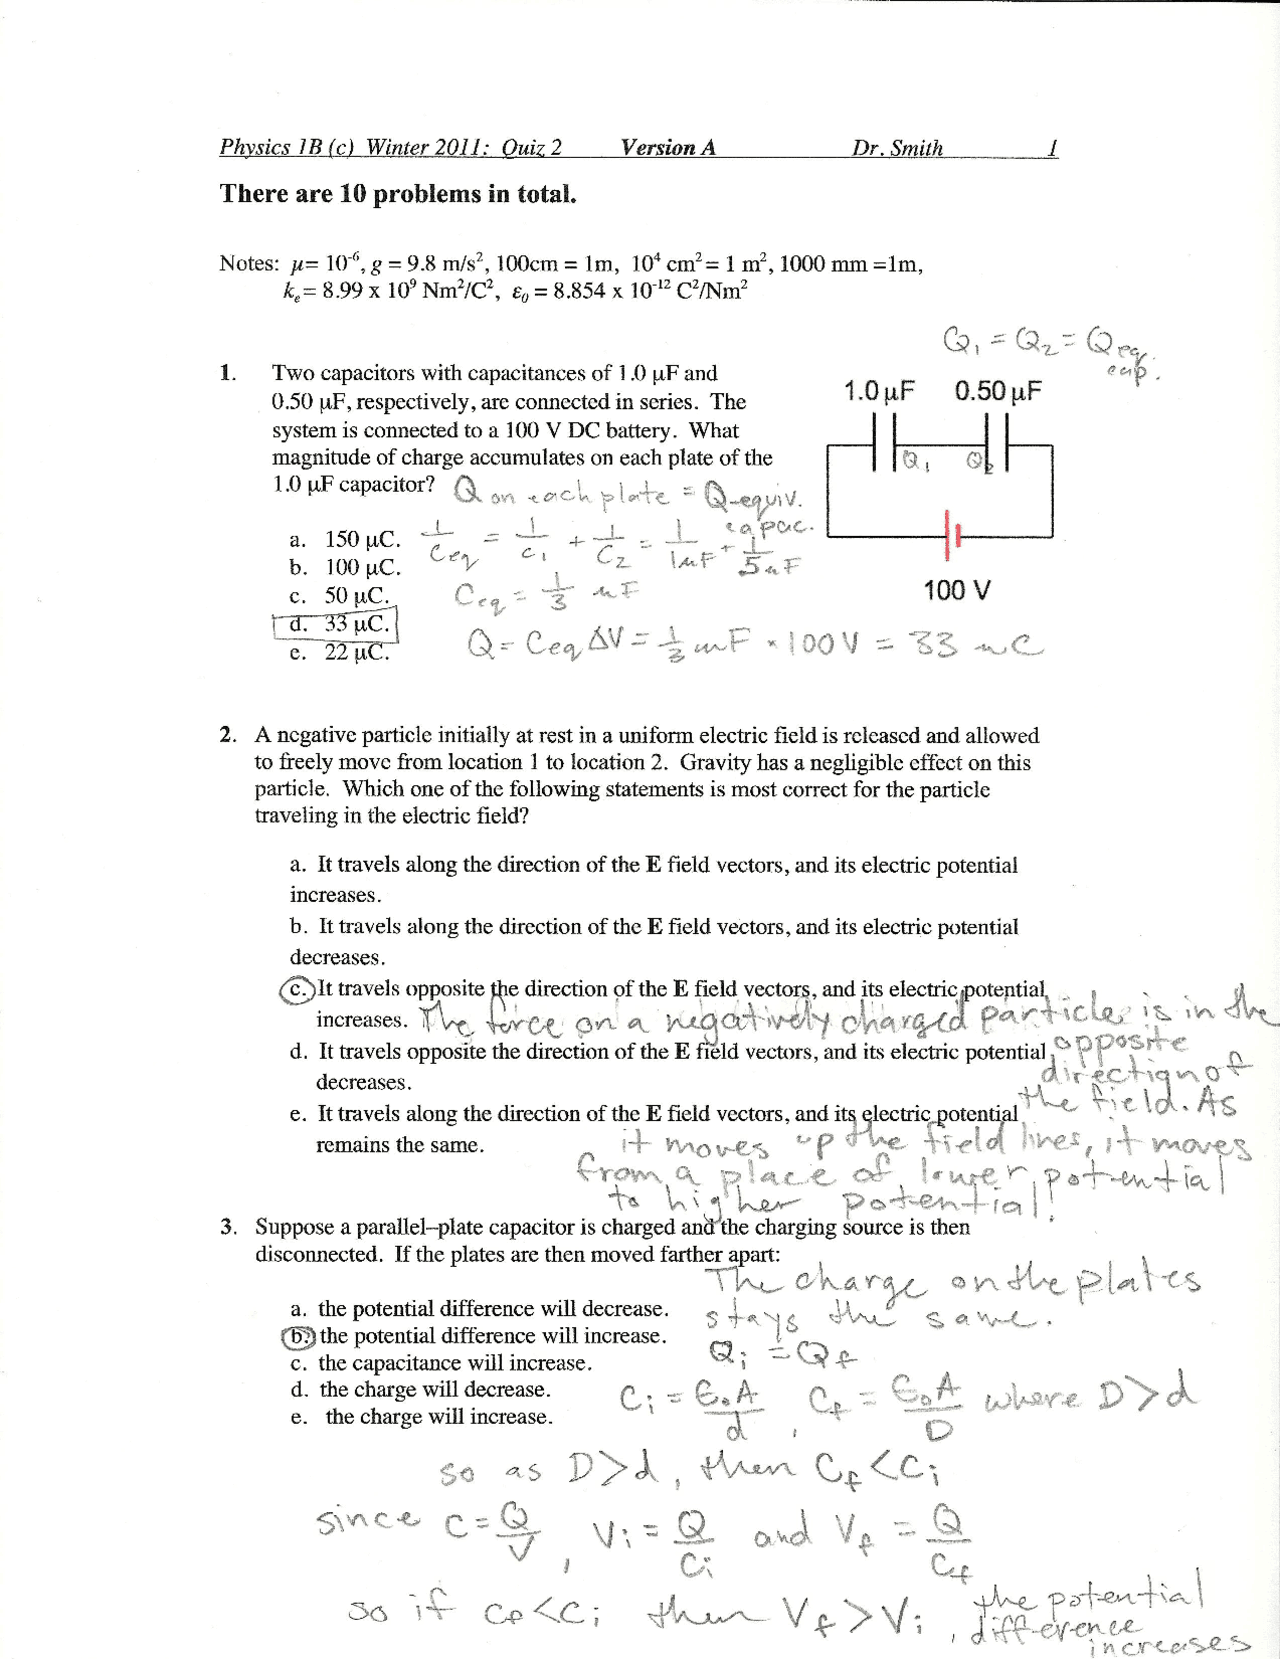 Physics 1B (c) Winter 2011: Quiz 2 Version A Dr. Smith 1
There are 10 problems in total.
Notes: μ= 10⁻⁶, g = 9.8 m/s², 100cm = 1m, 10⁴ cm² = 1 m², 1000 mm =1m,
kₑ = 8.99 x 10⁹ Nm²/C², ε₀ = 8.854 x 10⁻¹² C²/Nm²
Q₁ = Q₂ = Q eq. cap.
1. Two capacitors with capacitances of 1.0 μF and
0.50 μF, respectively, are connected in series. The
system is connected to a 100 V DC battery. What
magnitude of charge accumulates on each plate of the
1.0 μF capacitor? Q on each plate = Q-equiv. capac.
1.0 μF 0.50 μF
Q₁ Q₂
100 V
a. 150 μC. 1/Ceq = 1/C₁ + 1/C₂ = 1/1μF + 1/.5μF
b. 100 μC.
c. 50 μC. Ceq = 1/3 μF
d. 33 μC.
e. 22 μC. Q = Ceq ΔV = 1/3 μF × 100V = 33 μC
2. A negative particle initially at rest in a uniform electric field is released and allowed
to freely move from location 1 to location 2. Gravity has a negligible effect on this
particle. Which one of the following statements is most correct for the particle
traveling in the electric field?
a. It travels along the direction of the E field vectors, and its electric potential
increases.
b. It travels along the direction of the E field vectors, and its electric potential
decreases.
c. It travels opposite the direction of the E field vectors, and its electric potential
increases. The force on a negatively charged particle is in the
d. It travels opposite the direction of the E field vectors, and its electric potential opposite
decreases. direction of
the field. As
e. It travels along the direction of the E field vectors, and its electric potential
remains the same. it moves up the field lines, it moves
from a place of lower potential
to higher potential!
3. Suppose a parallel–plate capacitor is charged and the charging source is then
disconnected. If the plates are then moved farther apart:
The charge on the plates
a. the potential difference will decrease. stays the same.
b. the potential difference will increase.
c. the capacitance will increase. Qi = Qf
d. the charge will decrease. Ci = ε₀A/d, Cf = ε₀A/D where D>d
e. the charge will increase.
so as D>d, then Cf<Ci
since C=Q/V, Vi = Q/Ci and Vf = Q/Cf
so if Cf<Ci then Vf>Vi, the potential
difference
increases